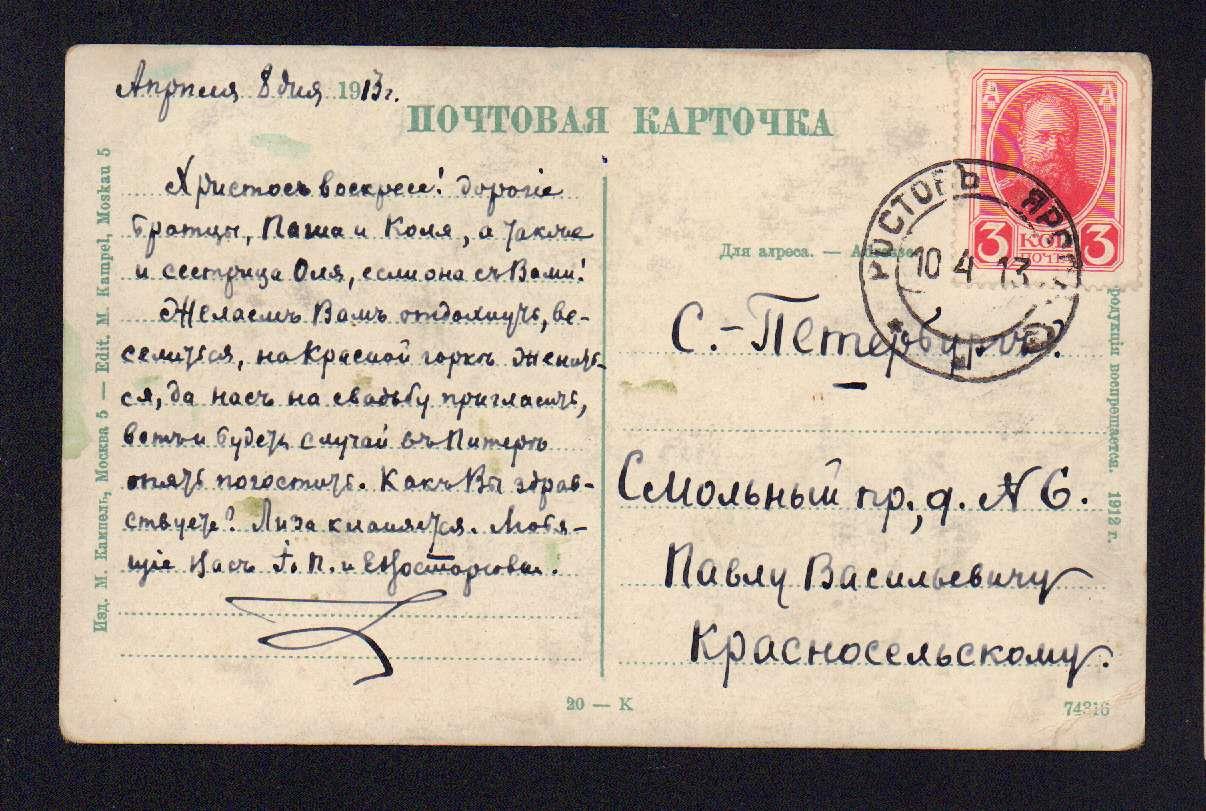 Апреля 8 дня 1913 г.
ПОЧТОВАЯ КАРТОЧКА
Христосъ воскресе! Дорогіе
братцы, Паша и Коля, а также
и сестрица Оля, если она съ Вами!
Желаемъ Вамъ отдохнуть, ве-
селиться, на Красной горкѣ женить-
ся, да насъ на свадьбу пригласить,
вотъ и будетъ случай въ Питерѣ
опять погостить. Какъ Вы здрав-
ствуете? Лиза кланяется. Любя-
щіе Васъ П. и
Для адреса. —
С.-Петербургъ.
Смольный пр., д. № 6.
Павлу Васильевичу
Красносельскому.
РОСТОВЪ ЯРОС
10 4 13
3 КОП 3
ПОЧТ
Изд. М. Кампель, Москва 5 — Edit. M. Kampel, Moskau 5
родукціи воспрещается. 1912 г.
20 — К
74316